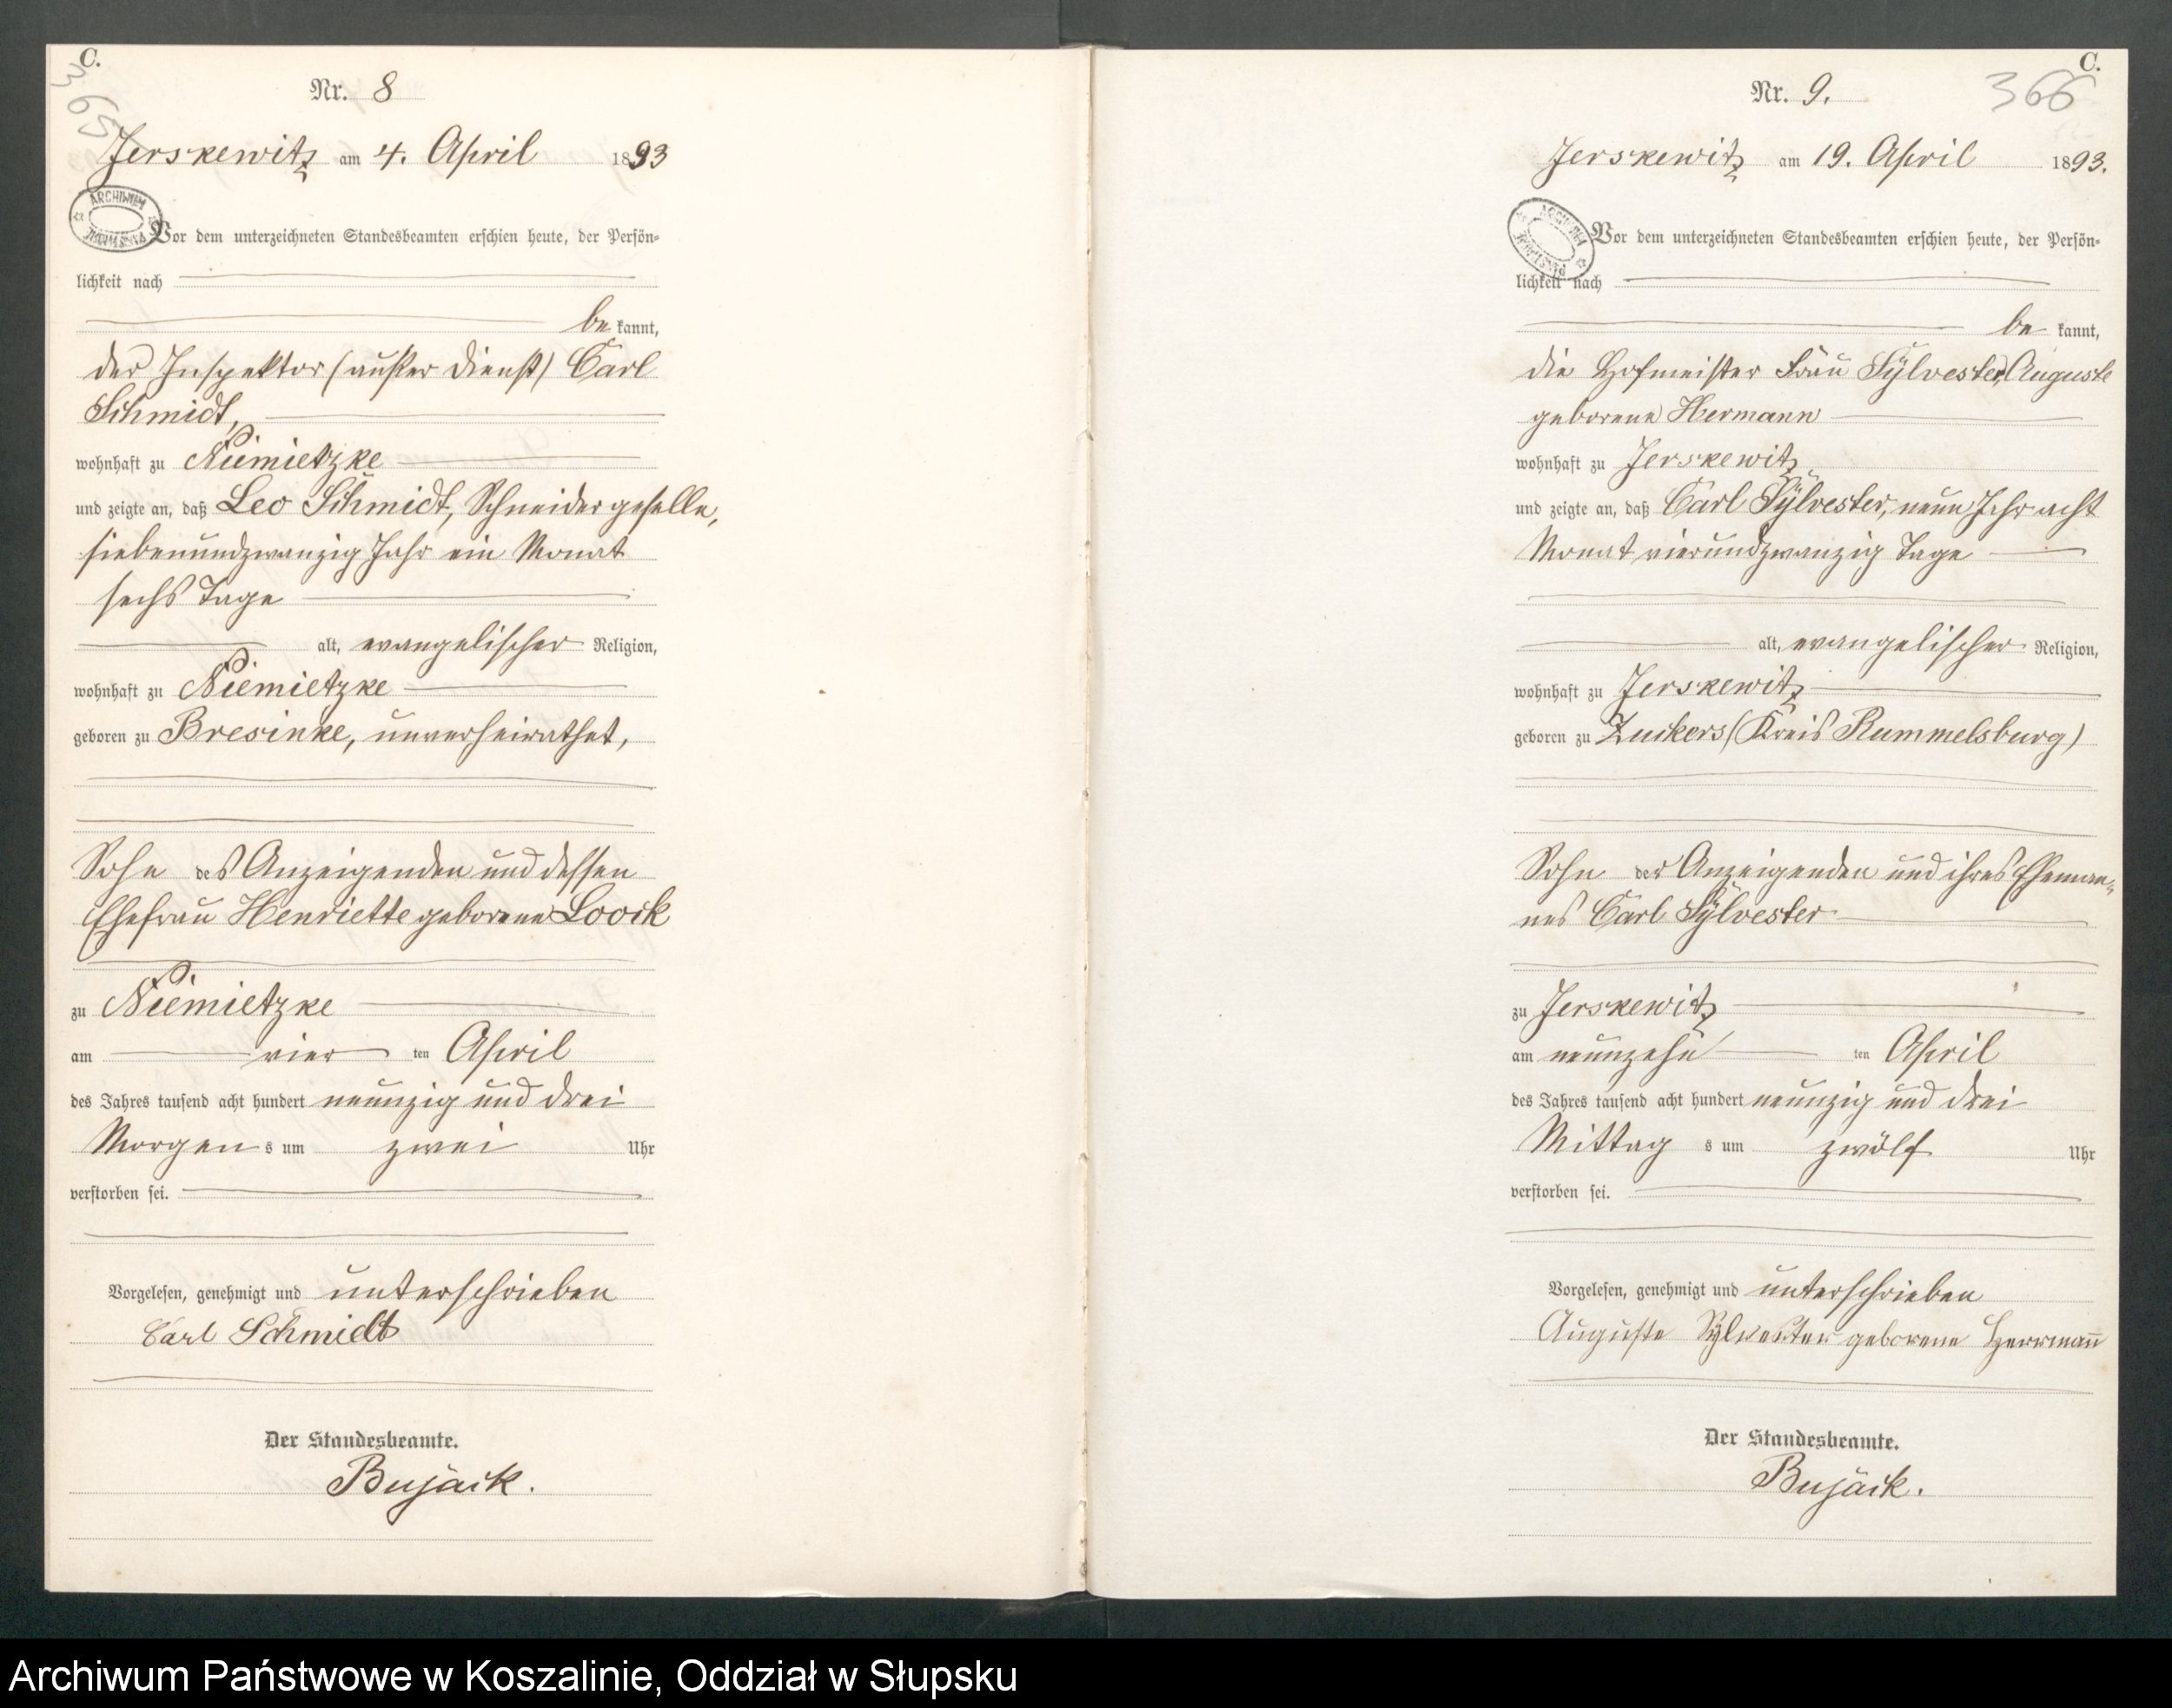 C.
365
Nr. 8
Jerskewitz am 4. April 1893
ARCHIWUM
Vor dem unterzeichneten Standesbeamten erschien heute, der Persön-
lichkeit nach
be kannt,
der Inspektor (außer Dienst) Carl
Schmidt,
wohnhaft zu Niemietzke
und zeigte an, daß Leo Schmidt, Schneidergeselle,
siebenundzwanzig Jahr ein Monat
sechs Tage
alt, evangelischer Religion,
wohnhaft zu Niemietzke
geboren zu Bresinke, unverheirathet,
Sohn des Anzeigenden und dessen
Ehefrau Henriette geborene Loock
zu Niemietzke
am vier ten April
des Jahres tausend acht hundert neunzig und drei
Morgen s um zwei Uhr
verstorben sei.
Vorgelesen, genehmigt und unterschrieben
Carl Schmidt
Der Standesbeamte.
Bujack.
C.
366
Nr. 9.
Jerskewitz am 19. April 1893.
Vor dem unterzeichneten Standesbeamten erschien heute, der Persön-
lichkeit nach
be kannt,
die Hofmeister Frau Sylvester, Auguste
geborene Hermann
wohnhaft zu Jerskewitz
und zeigte an, daß Carl Sylvester, neun Jahr acht
Monat vierundzwanzig Tage
alt, evangelischer Religion,
wohnhaft zu Jerskewitz
geboren zu Zuckers (Kreis Rummelsburg)
Sohn der Anzeigenden und ihres Eheman-
nes Carl Sylvester
zu Jerskewitz
am neunzehn ten April
des Jahres tausend acht hundert neunzig und drei
Mittag s um zwölf Uhr
verstorben sei.
Vorgelesen, genehmigt und unterschrieben
Auguste Sylvester geborene Herrmann
Der Standesbeamte.
Bujack.
Archiwum Państwowe w Koszalinie, Oddział w Słupsku